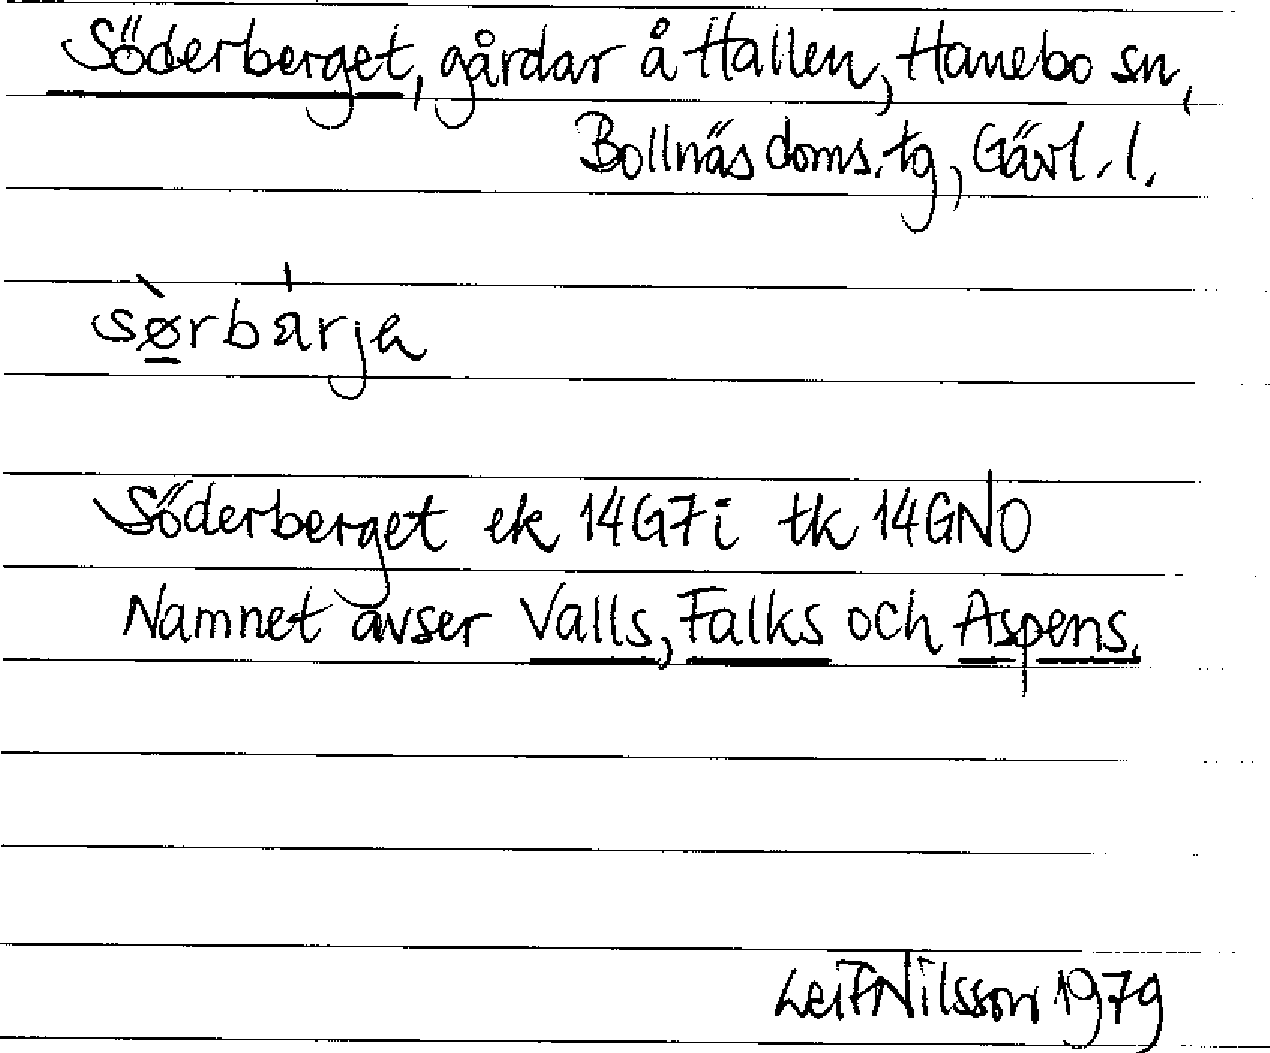 Söderberget, gårdar å Hallen, Hanebo sn,
Bollnäs doms. tg, Gävl. l.
sø̲̀rba̍rja
Söderberget ek 14G7i tk 14GNO
Namnet avser Valls, Falks och Aspens.
Leif Nilsson 1979